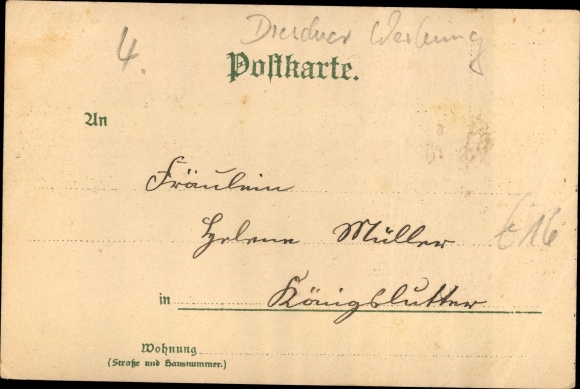 4. Dresdner Werbung
Postkarte.
An
Fräulein
Helene Müller
€ 16
in Königslutter
Wohnung
(Straße und Hausnummer.)